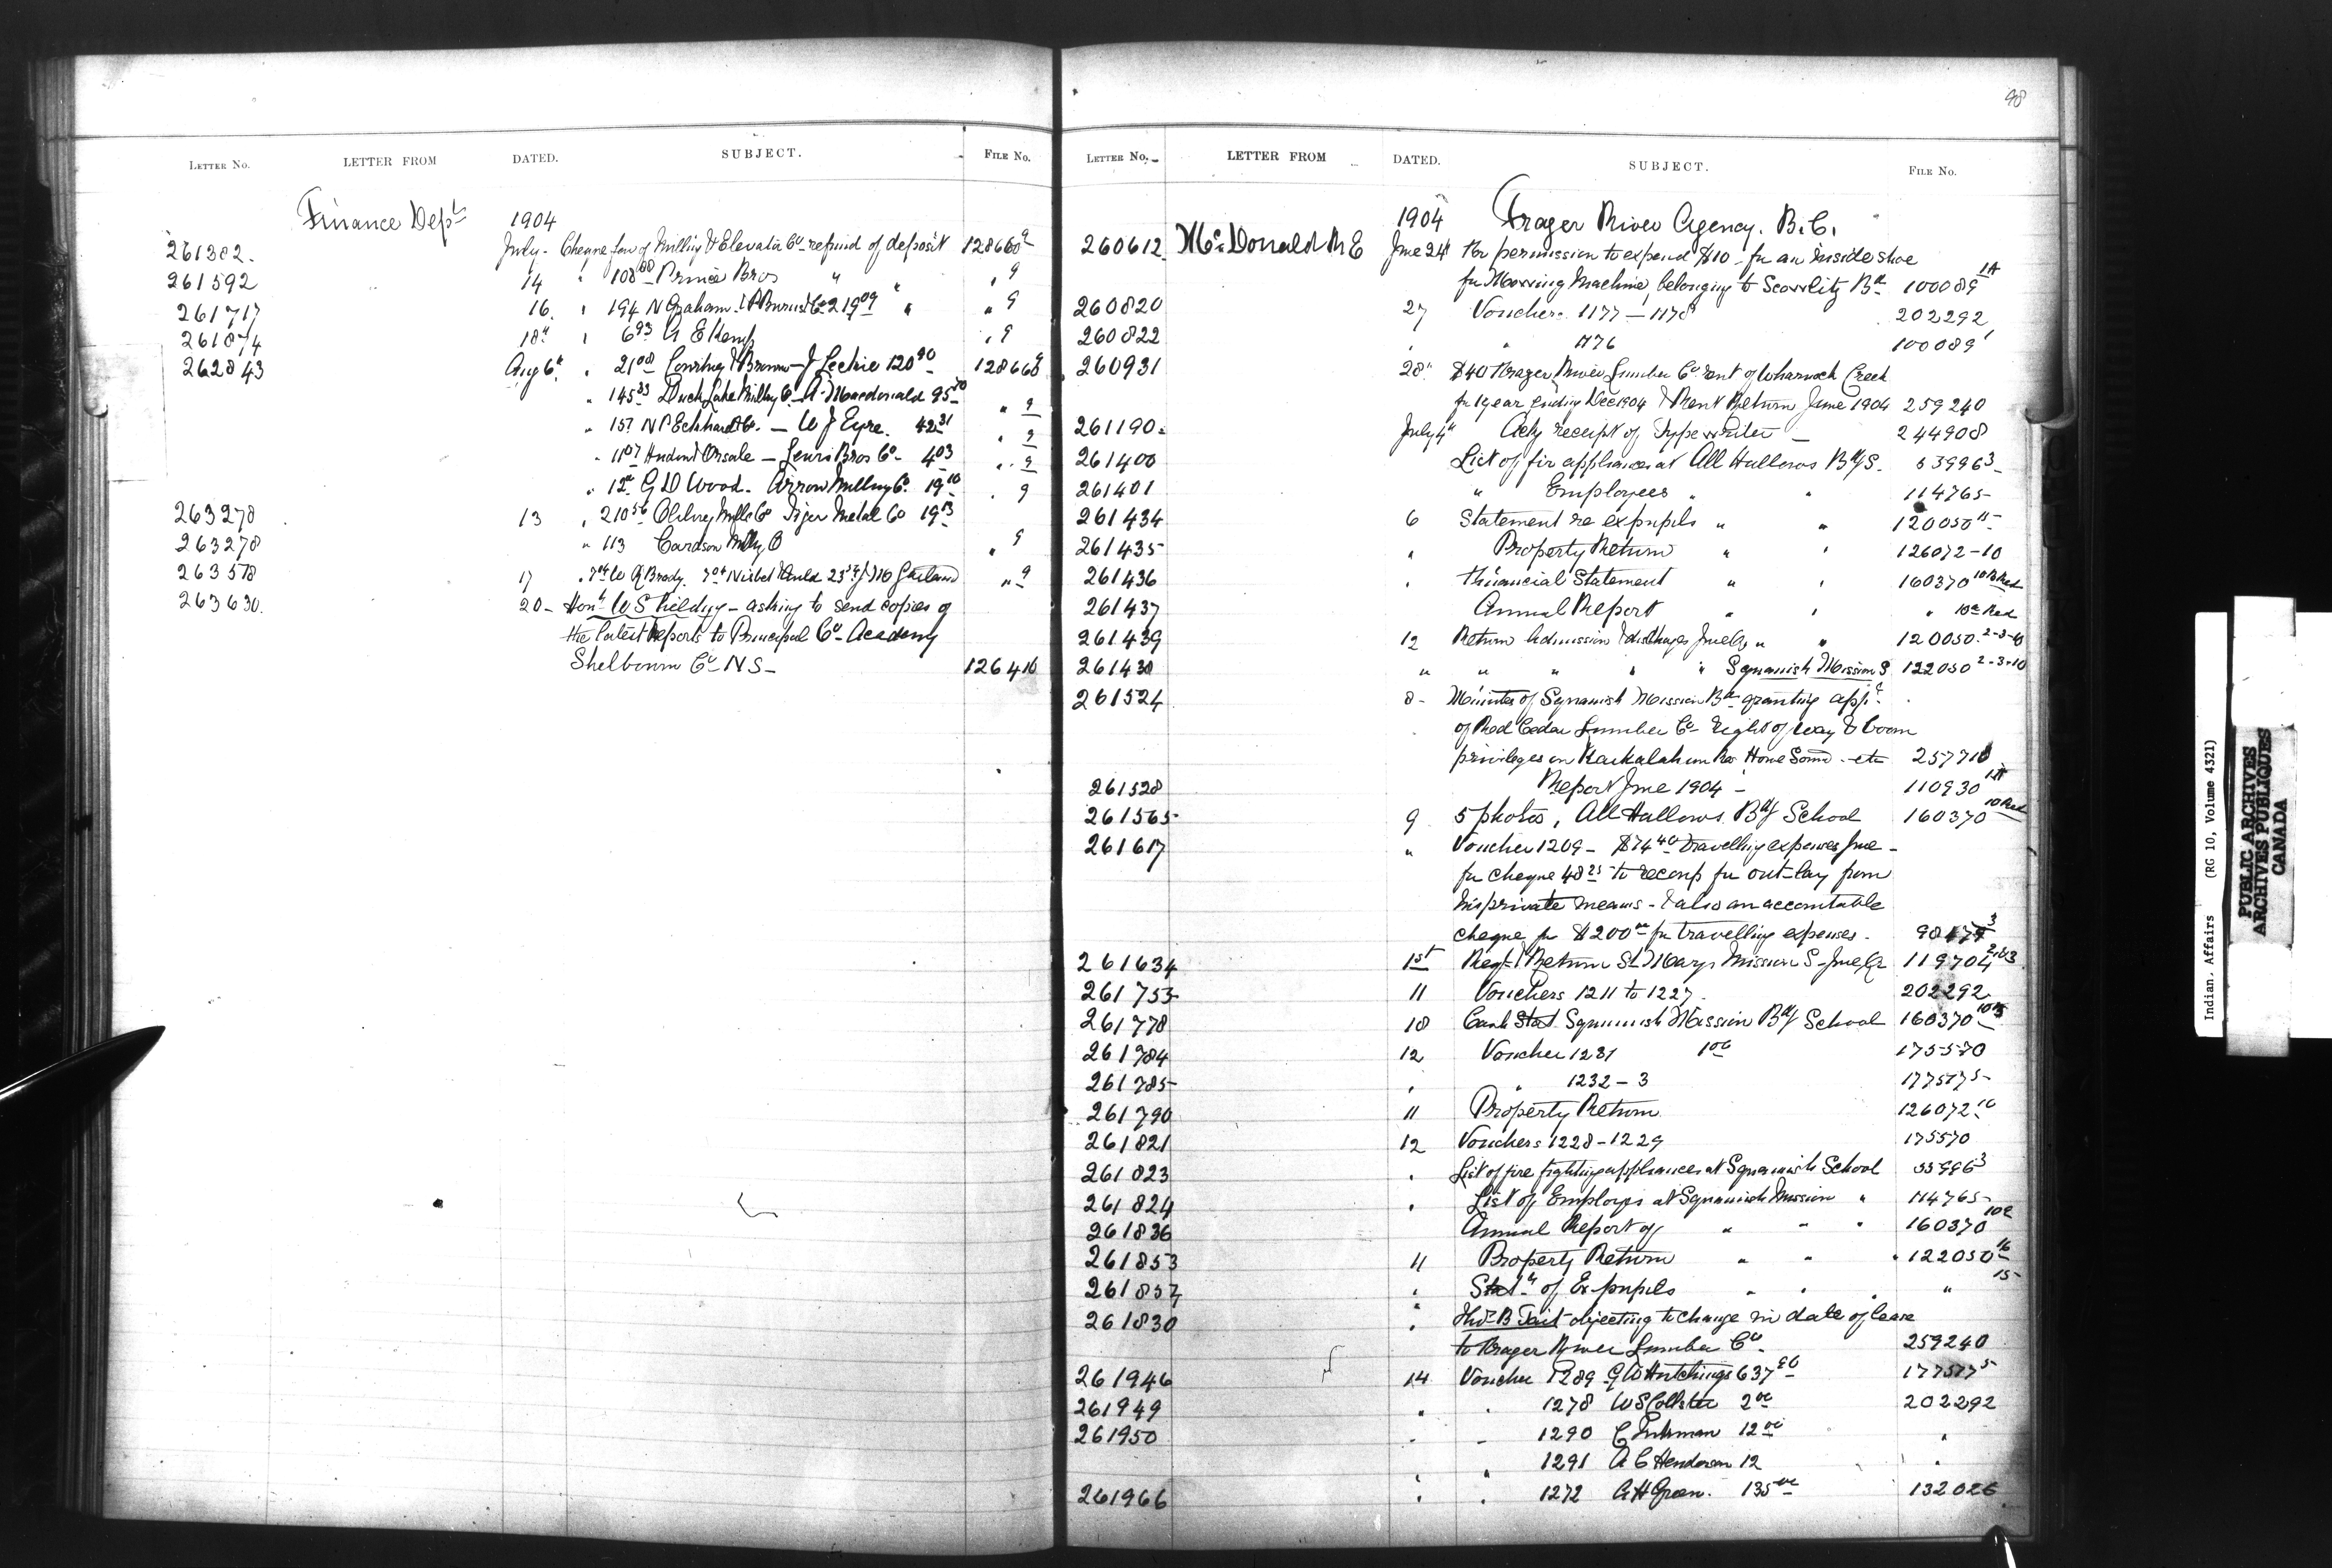 98
LETTER NO. LETTER FROM DATED. SUBJECT. FILE NO.
Finance Dept 1904
261382. July - Cheque fav of Milling & Elevator Co - refund of deposit 128660 9
261592 14 " 108 00 Prince Bros " " " 9
261717 16. " 194 N Graham. P Burns & Co 219 09 " " 9
261874 18" " 6 93 A E Kemp " 9
262843 Aug 6" " 21 00 Cowling & Brown - J Leckie 120 90 128660 9
" 145 33 Duck Lake Milling Co - A Macdonald 95 50 " 9
" 157 N P Eckhardt Co. - W J Eyre. 42 31 " 9
" 11 07 Hudon & Orsale - Lewis Bros Co - 4 03 " 9
" 12 G D Wood. Arrow Milling Co. 19 10 " 9
263278 13 " 210 56 Ogilvey Mills Co Tiger Metal Co 19 13
263278 " 113 Cardson Milling Co " 9
263578 17 W A Brady. Nisbet & Auld 23 Garland " 9
263630. 20 - Honl W S Fielding - asking to send copies of
the latest Reports to Principal Co - Academy
Shelbourn Co - N S - 126416
LETTER NO. LETTER FROM DATED. SUBJECT. FILE NO.
1904 Frager River Agency. B.C.
260612 McDonald R E June 24" For permission to expend $10 - for an inside shoe
for Mowing Machine, belonging to Scowlitz Bd 100089 1A
260820 27 Vouchers 1177 - 1178 202292
260822 " " 1176 100089 1
260931 28" $40 Frager River Lumber Co rent of Wharnock Creek
for 1 year ending Dec 1904 & Rent Return June 1904 259240
261190. July 4" Ackg receipt of Typewriter - 244908
261400 List of fir appliances at All Hallows Bdg S. 63996 3
261401 " Employees " " 114765
261434 6 Statement re expupils " " 120050 15
261435 " Property Return " " 126072-10
261436 " Financial Statement " " 160370 10B Red
261437 Annual Report " " " 10a Red
261439 12 Return Admission & discharges June Qr " " 120050. 2-3-10
261438 " " " " " Squamish Mission S 122050 2-3-10
261524 8 - Minutes of Squamish Mission Bd - granting appl.
of Red Cedar Lumber Co - right of way & boom
privileges on Kaikalahun Res Howe Sound - etc 257710
261528 Report June 1904 - 110930 1A
261565 9 5 photos, All Hallows Bdg School 160370 10 Red
261617 " Voucher 1209 - $74 40 travelling expenses June -
for cheque 48 25 to recoup for out-lay from
his private means - & also an accountable
cheque for $200 00 for travelling expenses. 98474 3
261634 1st Reqt & Return St Marys Mission S - June Qr 119704 2&3
261753 11 Vouchers 1211 to 1227. 202292
261778 18 Cash Stat. Squamish Mission Bdg School 160370 10B
261784 12 Voucher 1231 1 00 175570
261785 " " 1232 - 3 177517 5
261790 11 Property Return 126072 10
261821 12 Vouchers 1228 - 1229 175570
261823 " List of fire fighting appliances at Squamish School 33996 3
261824 " List of Employes at Squamish Mission " 114765
261836 Annual Report of " " " 160370 10a
261853 11 Property Return " " " 122050 16
261857 " Statt of Ex-pupils " " " " 15
261830 " Fwd - B Tait - objecting to change in date of lease
to Frager River Lumber Co. 259240
261946 14 Voucher 1289 G W Hutchings 637 90 177517 5
261949 " " 1278 W S Collster 2 00 202292
261950 " " 1290 C Inkman 12 00 "
" 1291 A C Henderson 12 "
261966 " " 1272 A H Green. 135 00 132026
Indian Affairs (RG 10, Volume 4321)
PUBLIC ARCHIVES
ARCHIVES PUBLIQUES
CANADA